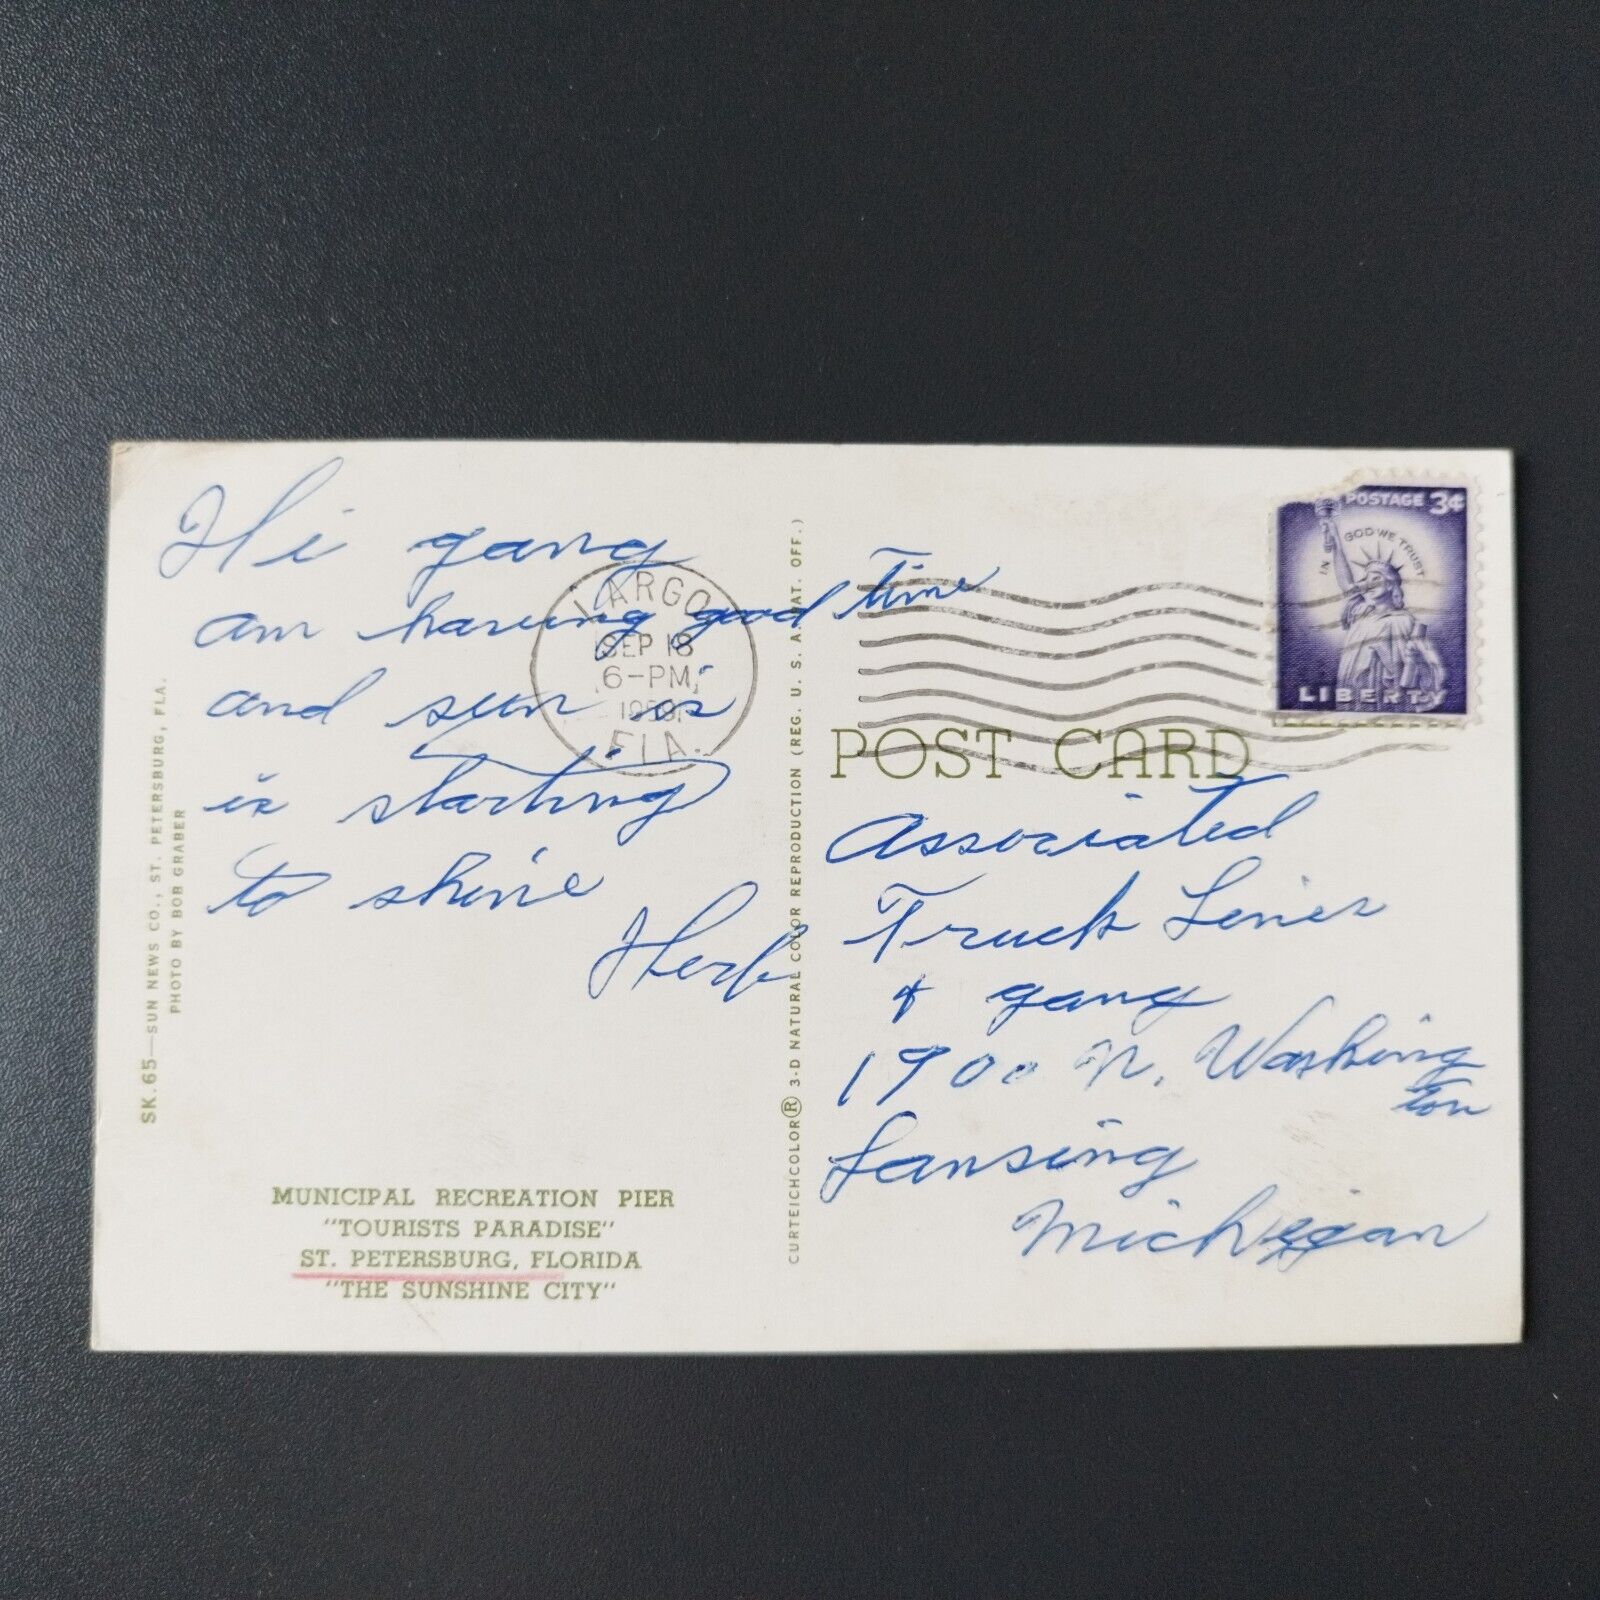 Hi gang
am having good time
and sun is
is starting
to shine
Herb
SK.65—SUN NEWS CO., ST. PETERSBURG, FLA.
PHOTO BY BOB GRABER
MUNICIPAL RECREATION PIER
"TOURISTS PARADISE"
ST. PETERSBURG, FLORIDA
"THE SUNSHINE CITY"
CURTEICHCOLOR® 3-D NATURAL COLOR REPRODUCTION (REG. U. S. A. PAT. OFF.)
LARGO
SEP 18
6-PM
1959
FLA.
POSTAGE 3¢
IN GOD WE TRUST
LIBERTY
POST CARD
Associated
Truck Lines
+ gang
1900 N. Washing
ton
Lansing
Michigan